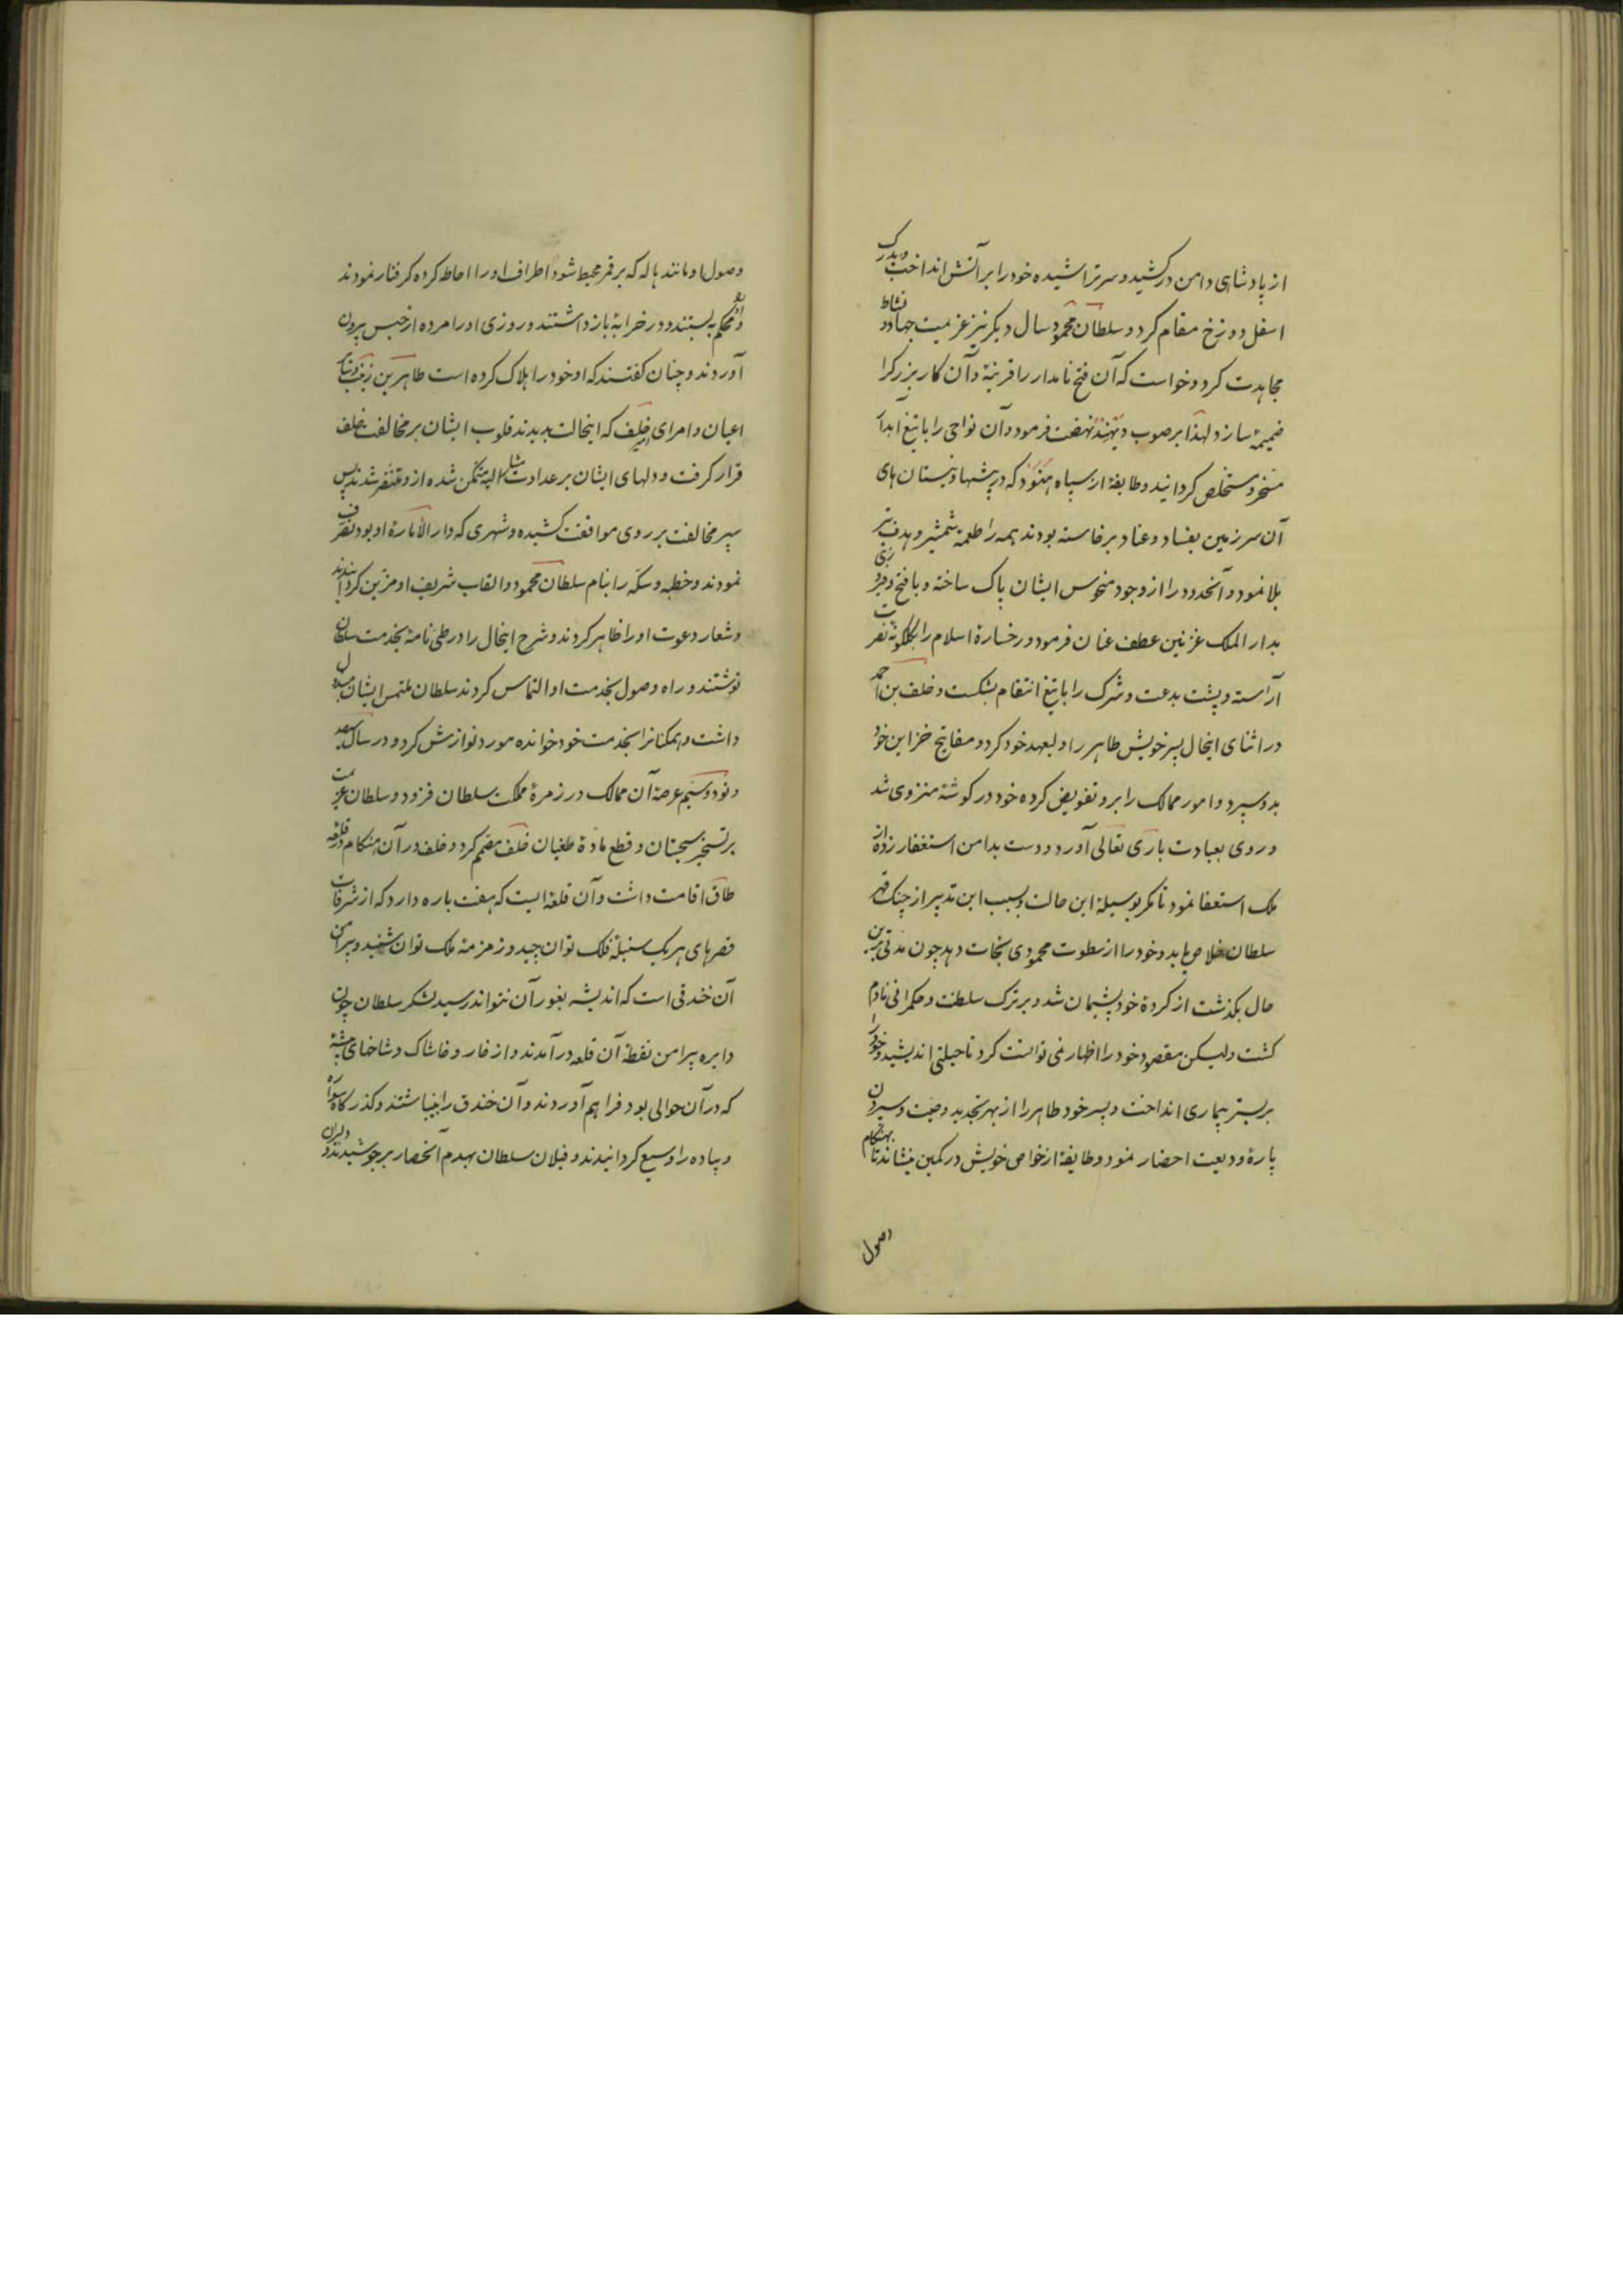 از پادشاهی دامن درکشید و سر تراشیده خود را بر آتش انداخت و بدرک
اسفل دوزخ مقام کرد و سلطان محمود سال دیگر نیز عزیمت جهاد و نشاط
مجاهدت کرد و خواست که آن فتح نامدار را قرینهٔ و آن کار بزرک را
ضمیمهٔ سازد لهذا بر صوب ویهند نهضت فرمود و آن نواحی را با تیغ ابدا
مسخر و مستخلص کردانید و طایفهٔ از سپاه هنود که در بیشها و نیستان های
آن سرزمین بفساد و عناد برخاسته بودند همه را طعمهٔ شمشیر و هدف تیر
بلا نمود و آنحدود را از وجود منحوس ایشان پاک ساخته و با فتح و فیروزی
بدار الملک غزنین عطف عنان فرمود و رخسارهٔ اسلام را بکلکونهٔ نصرت
آراسته و پشت بدعت و شرک را با تیغ انتقام بشکست و خلف بن احمد
در اثنای اینحال پسر خویش طاهر را ولیعهد خود کرد و مفاتیح خزاین خود
بدو سپرد و امور ممالک را برو تفویض کرده خود در کوشهٔ منزوی شد
و روی بعبادت باری تعالی آورد و دست بدامن استغفار زده از
ملک استعفا نمود تا مکر بوسیلهٔ این حالت و بسبب این تدبیر از چنک قهر
سلطان خلاص یابد و خود را از سطوت محمودی نجات دهد چون مدتی برین
حال بکذشت از کردهٔ خود پشیمان شد و بر ترک سلطنت و حکمرانی نادم
کشت ولیکن مقصود خود را اظهار نمی توانست کرد تا حیلتی اندیشید و خود را
بر بستر بیماری انداخت و پسر خود طاهر را از بهر تجدید وصیت و سپردن
پارهٔ ودیعت احضار نمود و طایفهٔ از خواص خویش در کمین بنشاند تا بهنکام
وصول
وصول او مانند هاله که بر قمر محیط شود اطراف او را احاطه کرده کرفتار نمودند
و محکم به بستند و در خرابهٔ بازداشتند و روزی او را مرده از حبس بیرون
آوردند و چنان کفتند که او خود را هلاک کرده است طاهر بن
اعیان و امرای خلف که اینحالت بدیدند قلوب ایشان بر مخالفت خلف
قرار کرفت و دلهای ایشان بر عداوت مشار الیه متمکن شده از و متنفر شدند پس
سپر مخالفت بر روی موافقت کشیده و شهری که دار الامارهٔ او بود تصرف
نمودند و خطبه و سکه را بنام سلطان محمود و القاب شریف او مزین کردانیدند
و شعار دعوت او را ظاهر کردند و شرح اینحال را در طی نامهٔ بخدمت سلطان
نوشتند و راه وصول بخدمت او التماس کردند سلطان ملتمس ایشان مبذول
داشت و همکنانرا بخدمت خود خوانده مورد نوازش کرد و در سال سیصد
و نود و سیم عرصهٔ آن ممالک در زمرهٔ مملکت سلطان فزود و سلطان عزیمت
بر تسخیر سجستان و قطع مادهٔ طغیان خلف مصمم کرد و خلف در آن هنکام در قلعه
طاق اقامت داشت و آن قلعهٔ ایست که هفت باره دارد که از شرفات
قصرهای هر یک سنبلهٔ فلک توان چید و زمزمهٔ ملک توان شنید و پیرامن
آن خندقی است که اندیشه بغور آن نتواند رسید لشکر سلطان چون
دایره پیرامن نقطهٔ آن قلعه درآمدند و از خار و خاشاک و شاخهای بیشه
که در آن حوالی بود فراهم آوردند و آن خندق را بینباشتند و کذرکاه سواره
و پیاده را وسیع کردانیدند و فیلان سلطان بهدم آنحصار برجوشیدند و دلیران